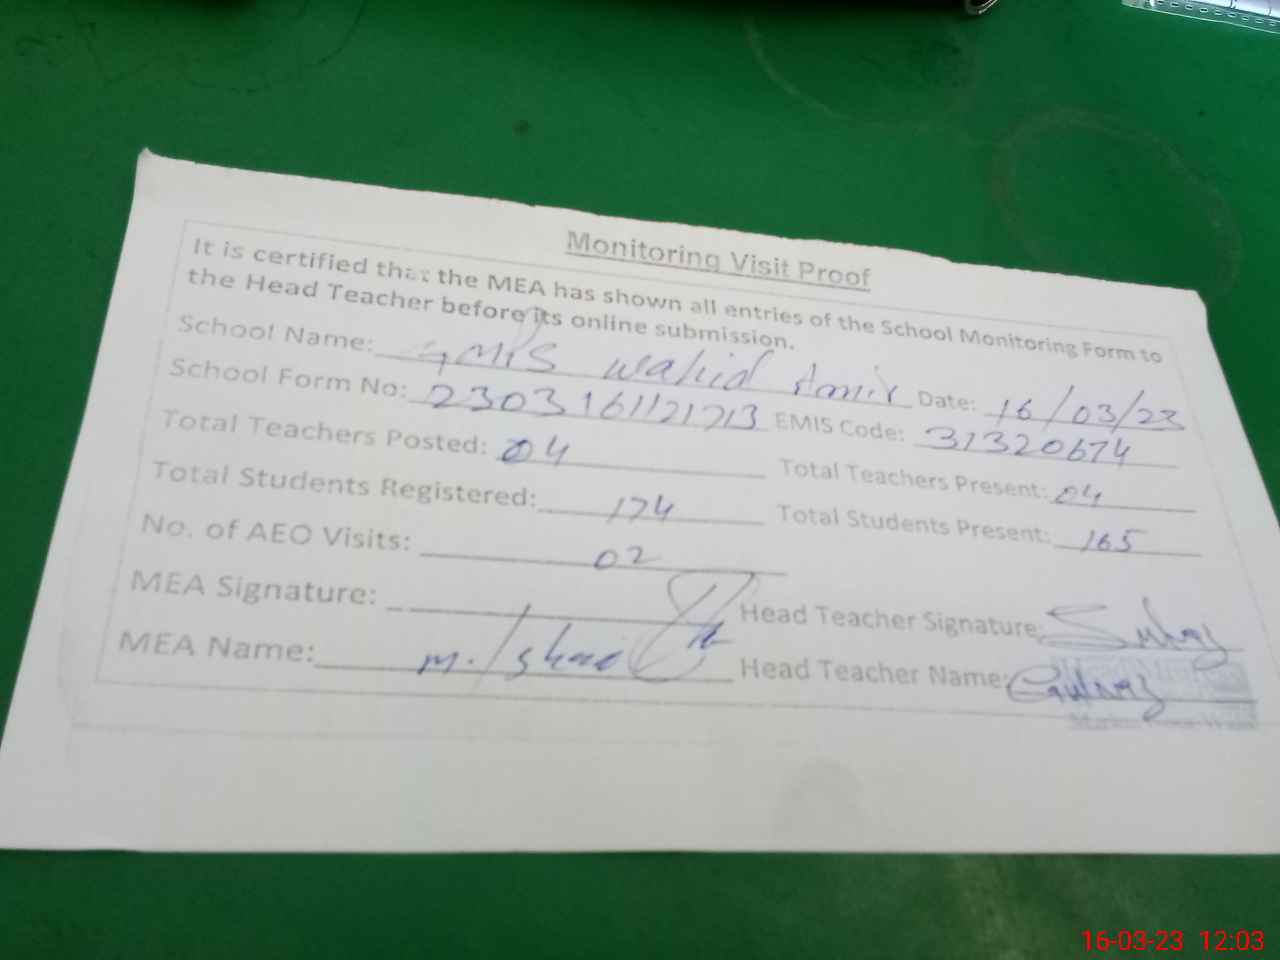 Monitoring Visit Proof
It is certified that the MEA has shown all entries of the School Monitoring Form to
the Head Teacher before its online submission.
School Name: GMPS Wahid Amir Date: 16/03/23
School Form No: 2303161121713 EMIS Code: 31320674
Total Teachers Posted: 04 Total Teachers Present: 04
Total Students Registered: 174 Total Students Present: 165
No. of AEO Visits: 02
MEA Signature: Head Teacher Signature:
MEA Name: M. Head Teacher Name: Gulnaz
16-03-23 12:03